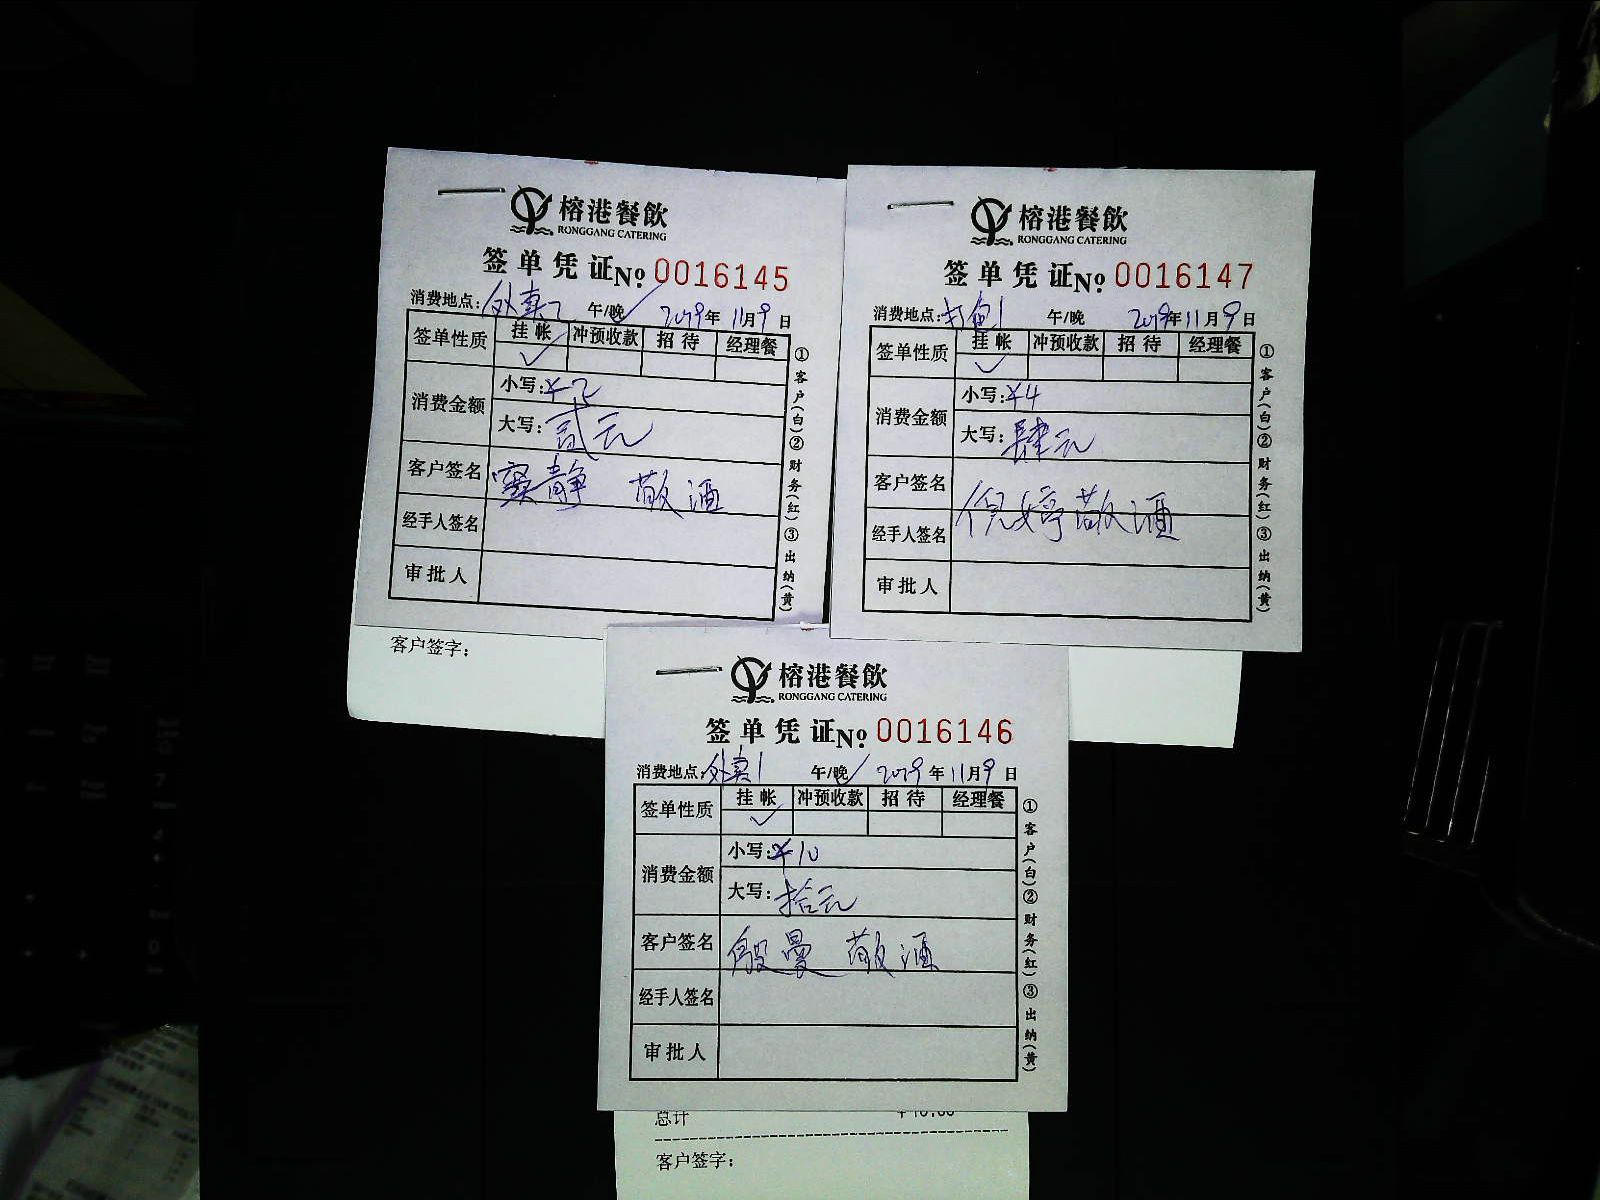 榕港餐飲
RONGGANG CATERING
签单凭证No 0016145
消费地点: 外卖2 午/晚 2019年11月9日
签单性质 挂帐 冲预收款 招待 经理餐
消费金额 小写:¥2
大写:贰元
客户签名 窦静 敬酒
经手人签名
审批人
①客户(白)②财务(红)③出纳(黄)
客户签字:
榕港餐飲
RONGGANG CATERING
签单凭证No 0016147
消费地点: 打包1 午/晚 2019年11月9日
签单性质 挂帐 冲预收款 招待 经理餐
消费金额 小写:¥4
大写:肆元
客户签名
倪婷敬酒
经手人签名
审批人
①客户(白)②财务(红)③出纳(黄)
榕港餐飲
RONGGANG CATERING
签单凭证No 0016146
消费地点: 外卖1 午/晚 2019年11月9日
签单性质 挂帐 冲预收款 招待 经理餐
消费金额 小写:¥10
大写:拾元
客户签名 殷曼 敬酒
经手人签名
审批人
①客户(白)②财务(红)③出纳(黄)
总计 ¥10.00
客户签字: